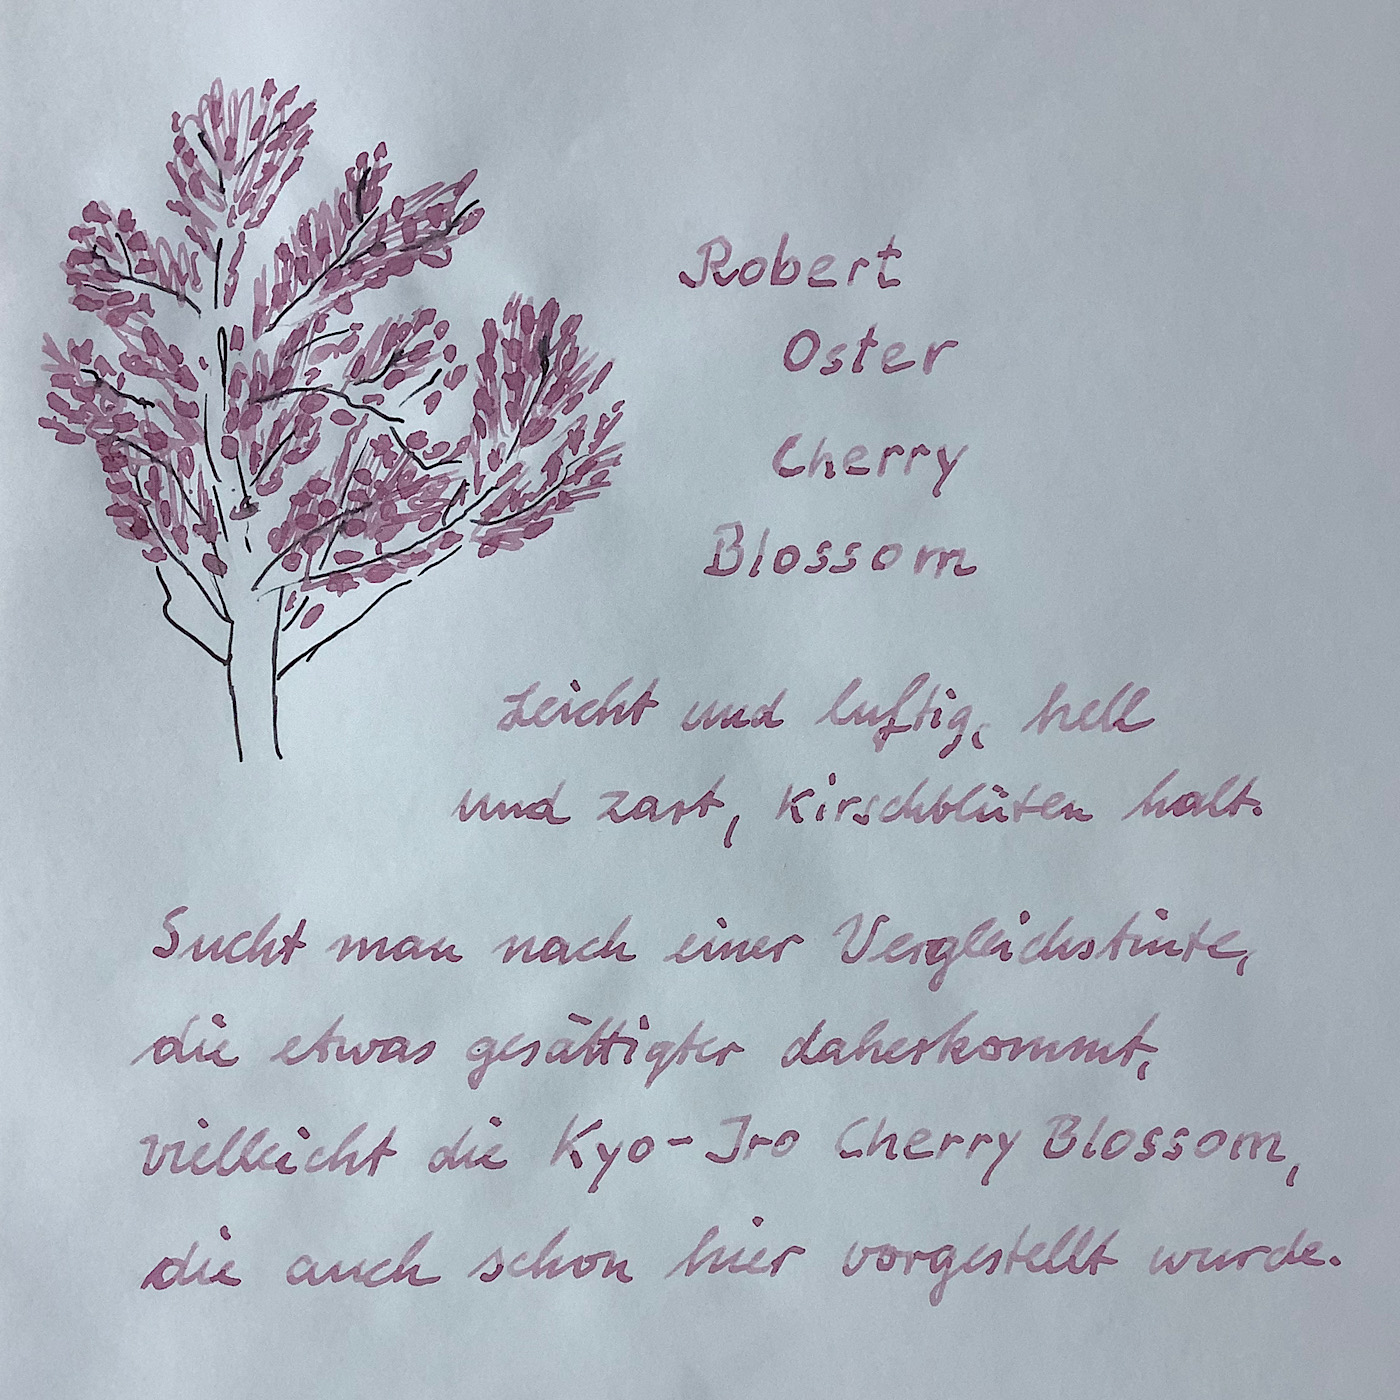 Robert
Oster
Cherry
Blossom
Leicht und luftig, hell
und zart, Kirschblüten halt.
Sucht man nach einer Vergleichstinte,
die etwas gesättigter daherkommt,
vielleicht die Kyo-Iro Cherry Blossom,
die auch schon hier vorgestellt wurde.